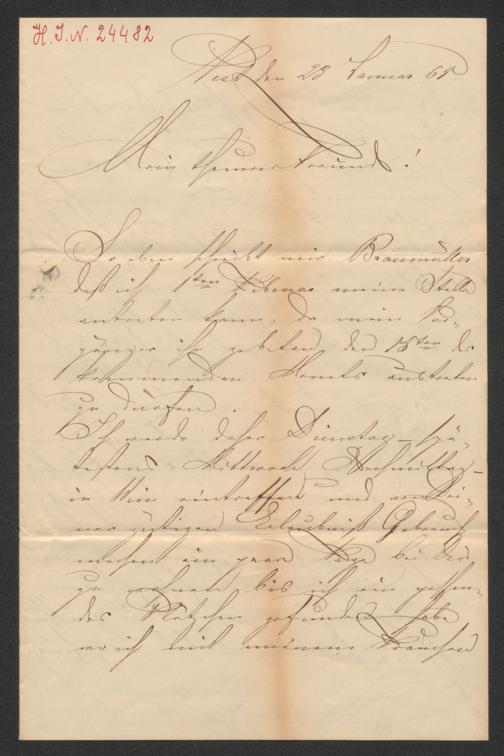 H. I. N. 24482
Pest den 23 Januar 65.
Mein theurer Freund!
So eben schreibt mir Braumüller
daß ich 1ten Februar meine Stelle
antreten kann, da mein Vor-
gänger ihn gebeten, den 15ten des
kommenden Monats austreten
zu dürfen.
Ich werde daher Dinstag – spä-
testens Mittwoch Nachmittag –
in Wien eintreffen und von Dei-
ner gütigen Erlaubniß Gebrauch
machen ein paar Tage bei Dir
zu wohnen bis ich ein passen-
des Plätzchen gefunden habe
wo ich mit meinem Frauchen